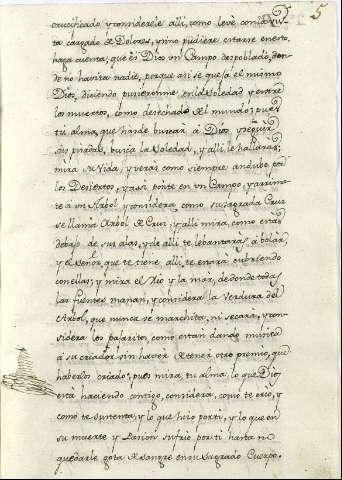 5
crucificado, y considerele alli, como leve con la vis
ta cargado de Dolores, y sino pudiere estarse en esto,
haga cuenta, que es Dios vn Campo despoblado, don
de no havita nadie, porque asi se queja el mismo
Dios, diciendo pusieronme en la soledad y entre
los muertos, como desechado del mundo; pues
tu alma, que has de buscar à Dios, y seguir
sus pisadas, busca la soledad, y alli le hallaras;
mira su Vida, y verás como siempre andubo por
los Desiertos, y assi, ponte en vn Campo, y arrima
te à vn Arbol, y considera, como, su sagrada Cruz
se llama Arbol de Cruz, y alli mira, como estàs
debajo de sus alas, y de alli te lebantaràs à bolàr,
y el señor, que te tiene alli, te estara cubriendo
con ellas; y mira el Rio y la mar, de donde todas
las fuentes manan, y considera la Verdura del
Arbol, que nunca se marchita, ni secarà, y con
sidera los pajaritos, como estàn dando musica
à su criador sin haver de tener otro premio, que
haberlos criado; pues mira, tu alma, lo que Dios
està haciendo contigo, considera, como te crio, y
como te sustenta, y lo que hizo por ti, y lo que en
su muerte y Pasion sufrio por ti hasta no
quedarle gota de sangre en su sagrado Cuerpo.